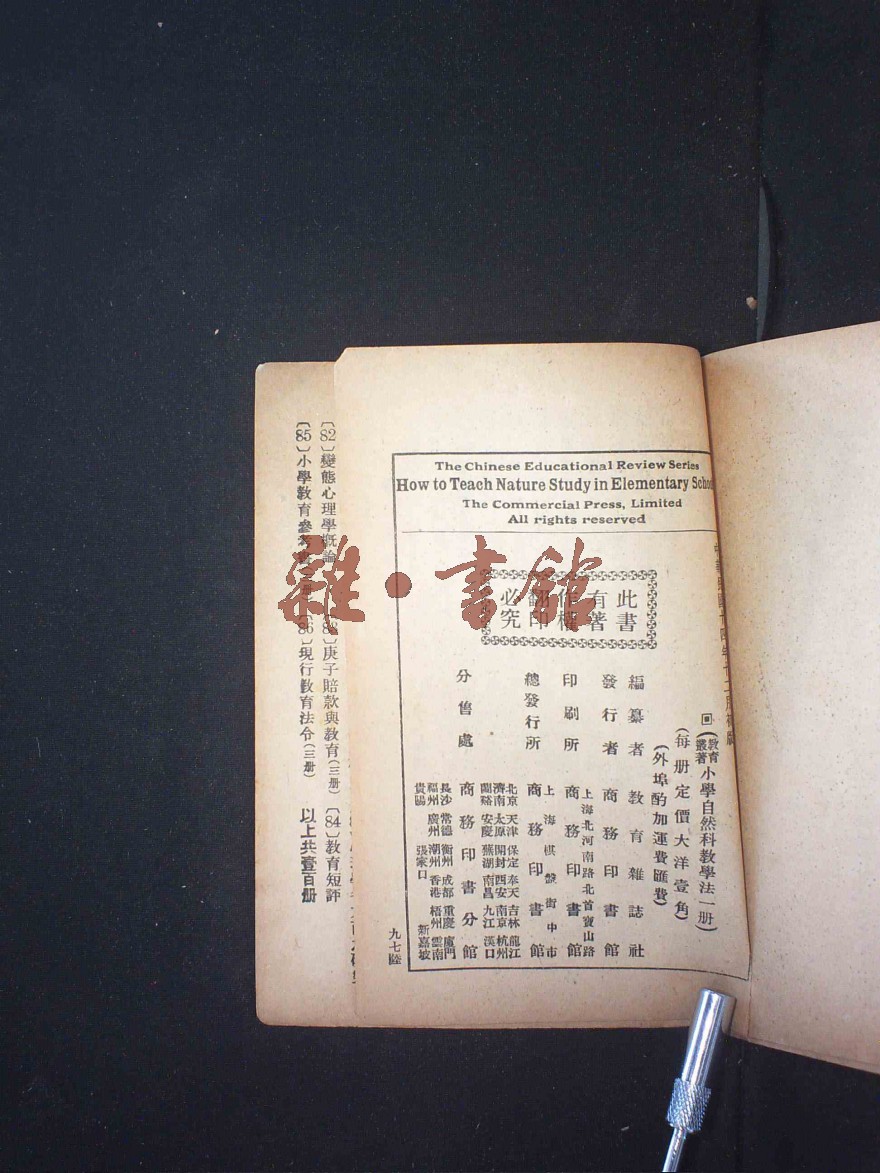 The Chinese Educational Review Series
How to Teach Nature Study in Elementary
The Commercial Press, Limited
All rights reserved
此書
有著
作權
翻印
必究
教育叢著
小學自然科教學法一册
(每册定價大洋壹角)
(外埠酌加運費匯費)
編纂者 教育雜誌社
發行者 商務印書館
上海北河南路北首寶山路
印刷所 商務印書館
上海棋盤街中市
總發行所 商務印書館
北京 天津 保定 奉天 吉林 龍江
濟南 太原 開封 西安 南京 杭州
蘭谿 安慶 蕪湖 南昌 九江 漢口
分售處 商務印書分館
長沙 常德 衡州 成都 重慶 廈門
福州 廣州 潮州 香港 梧州 雲南
貴陽 張家口 新嘉坡
九七陸
〔82〕變態心理學概論
庚子賠款與教育(三册)
〔84〕教育短評
〔85〕小學教育參考
〔86〕現行教育法令(三册)
以上共壹百册
雜·書館